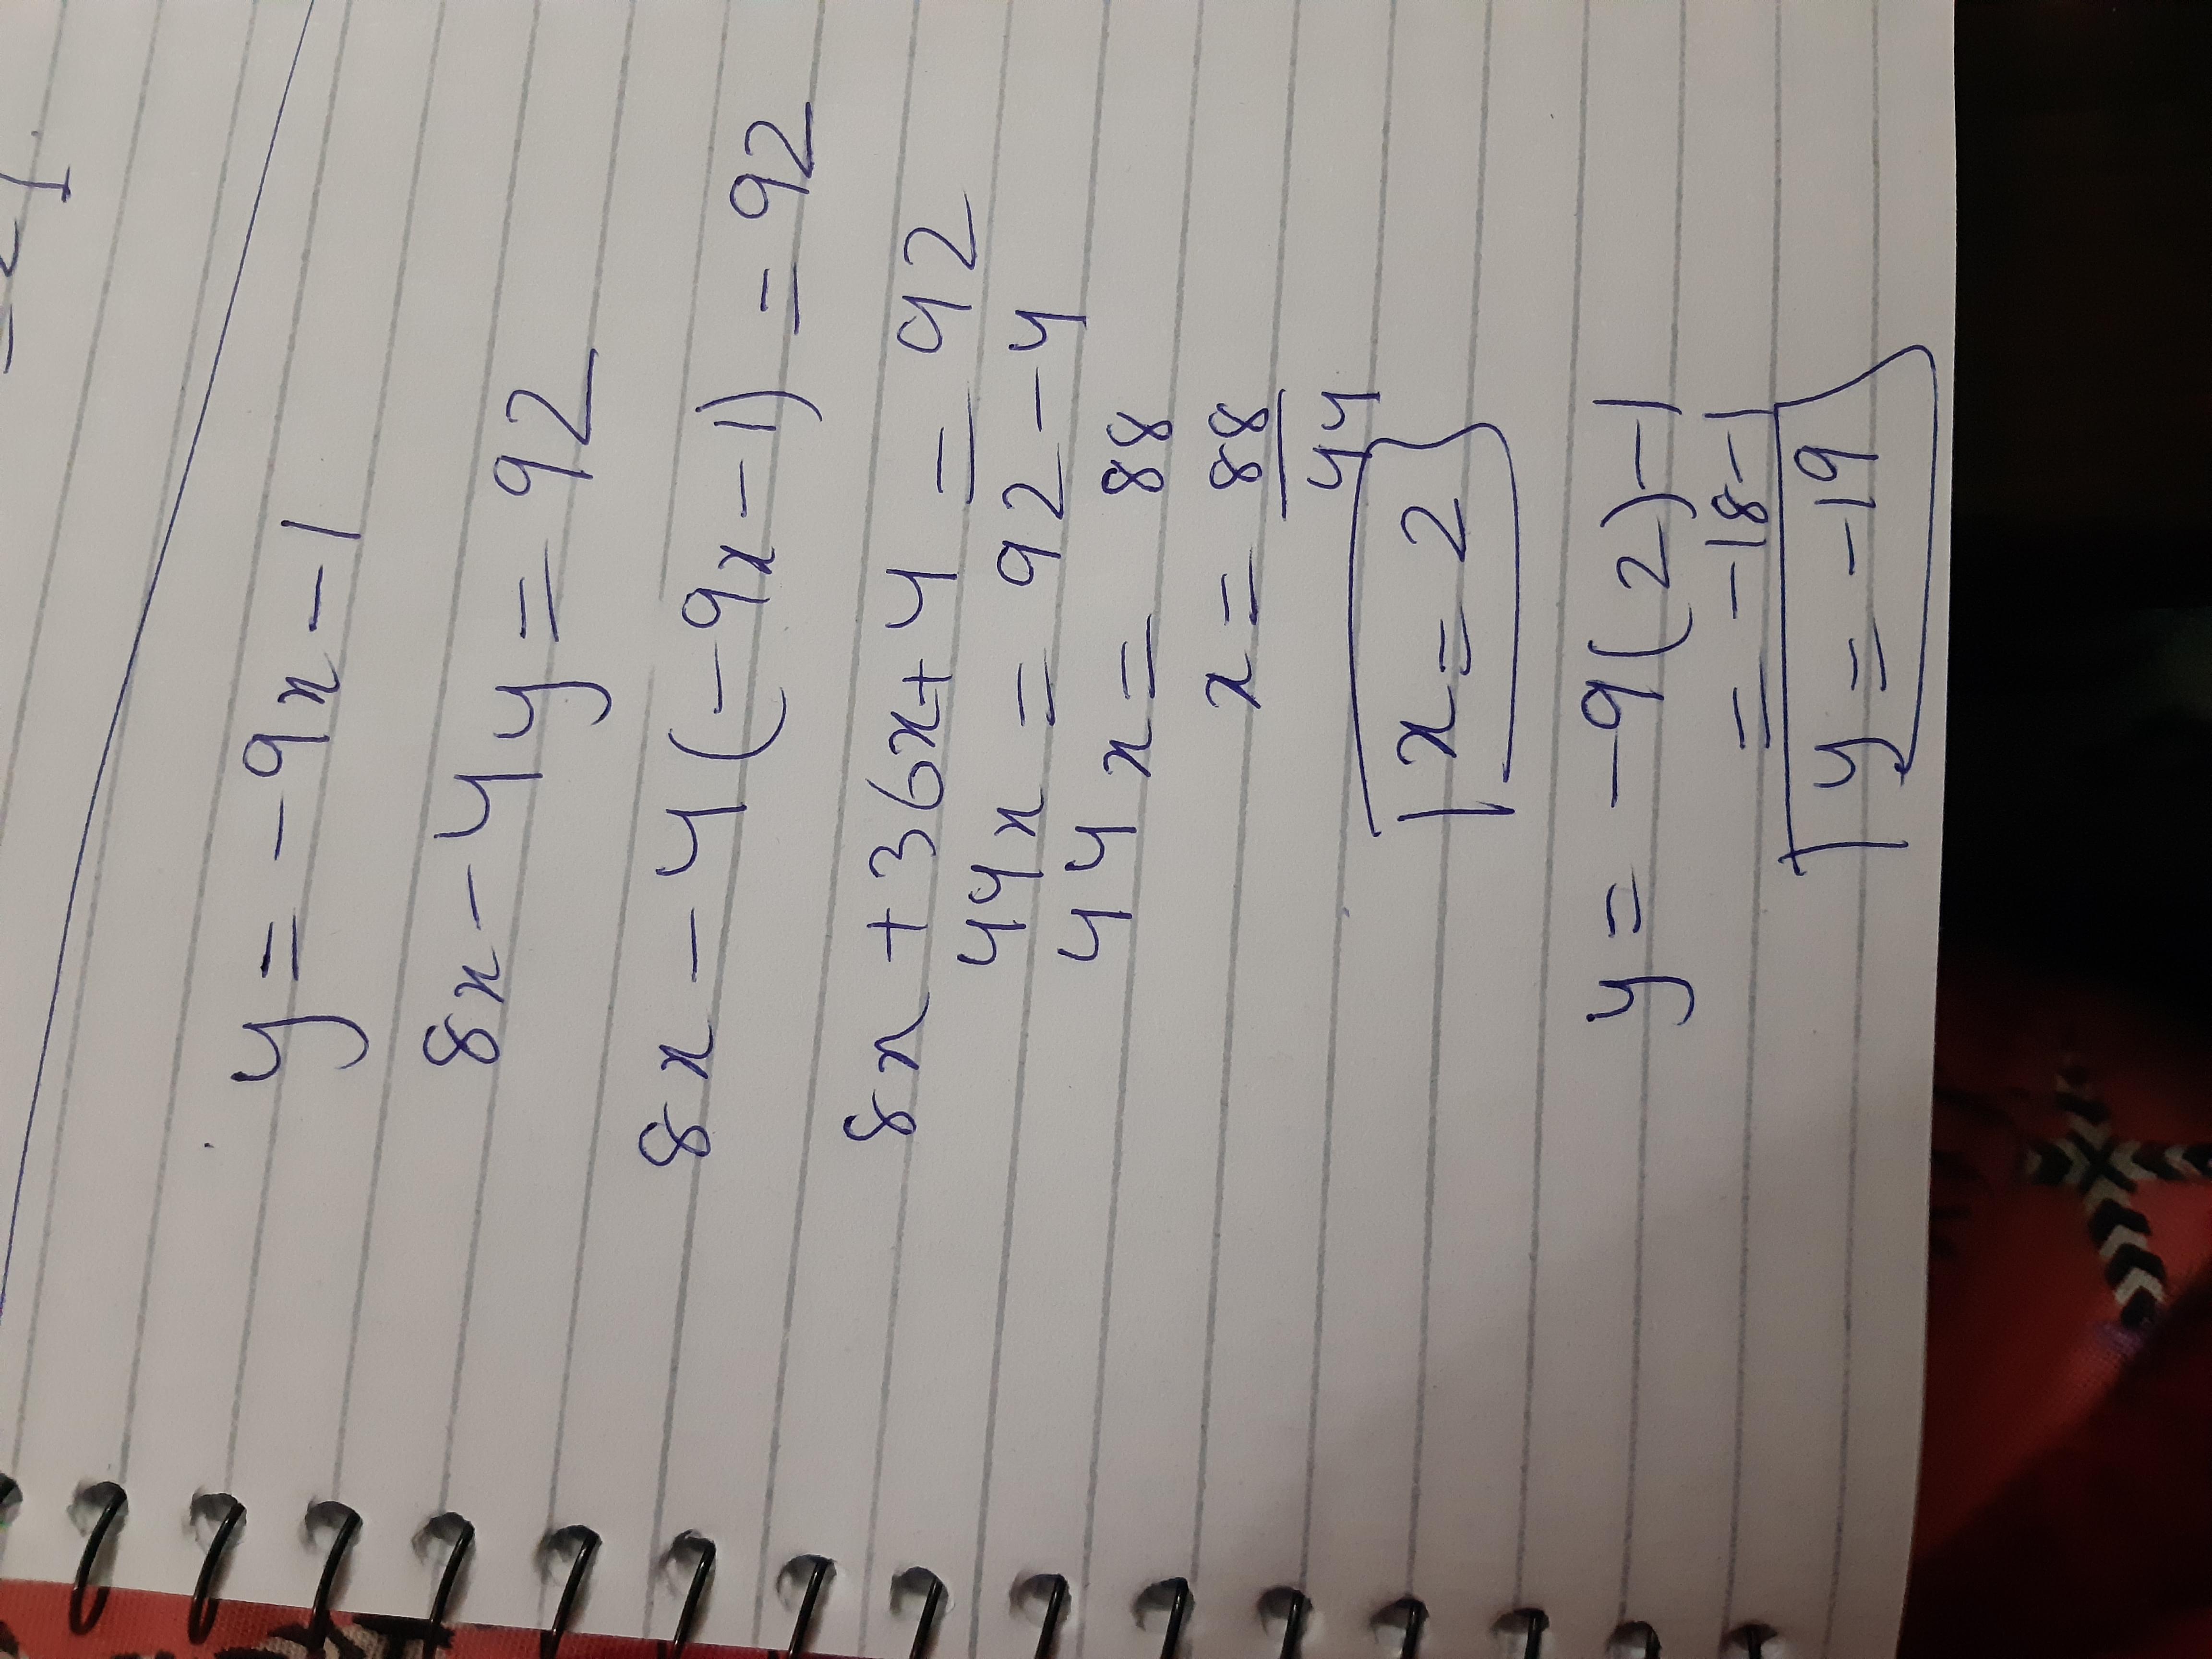 y = -9x - 1
8x - 4y = 92
8x - 4(-9x - 1) = 92
8x + 36x + 4 = 92
44x = 92 - 4
44x = 88
x = 88/44
x = 2
y = -9(2) - 1
= -18 - 1
y = -19